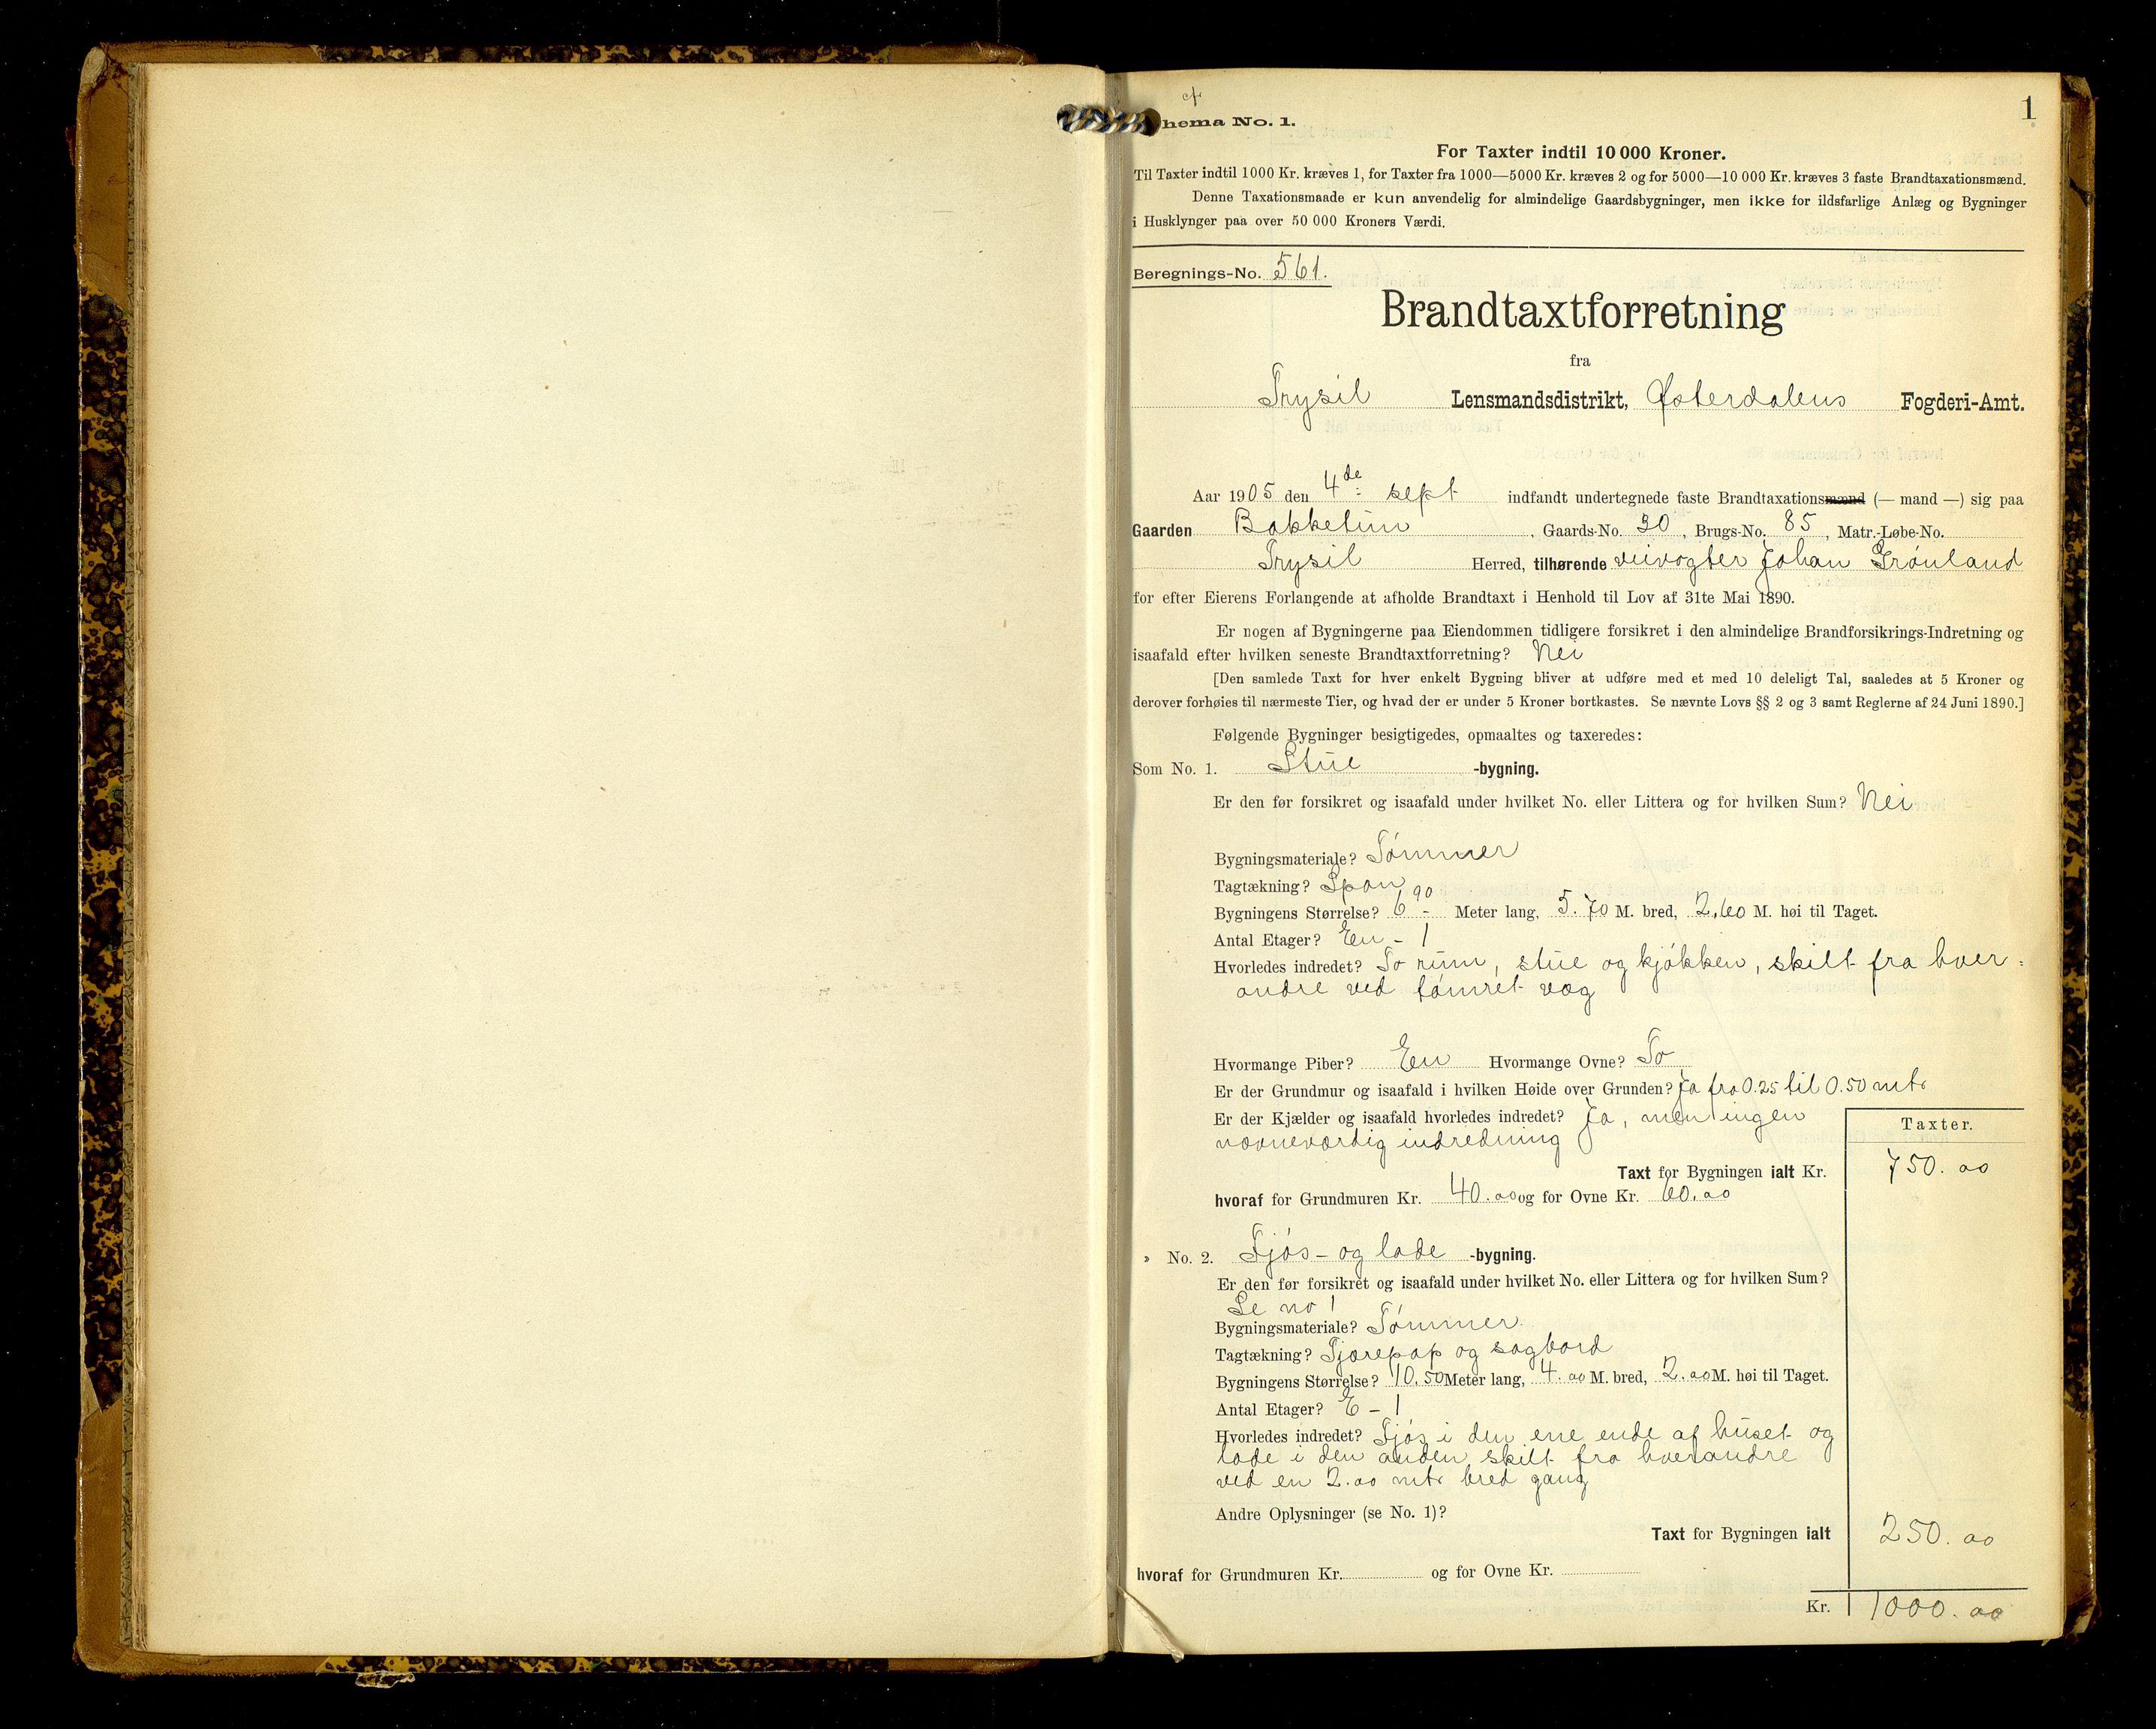 1
hema No. 1.
For Taxter indtil 10 000 Kroner.
Til Taxter indtil 1000 Kr. kræves 1, for Taxter fra 1000—5000 Kr. kræves 2 og for 5000—10 000 Kr. kræves 3 faste Brandtaxationsmænd.
Denne Taxationsmaade er kun anvendelig for almindelige Gaardsbygninger, men ikke for ildsfarlige Anlæg og Bygninger
i Husklynger paa over 50 000 Kroners Værdi.
Beregnings-No. 561.
Brandtaxtforretning
fra
Trysil Lensmandsdistrikt, Østerdalens Fogderi-Amt.
Aar 1905 den 4de sept indfandt undertegnede faste Brandtaxationsmænd (— mand —) sig paa
Gaarden Bakketun, Gaards-No. 30, Brugs-No. 85, Matr.-Løbe-No.
Trysil Herred, tilhørende veivogter Johan Grønland
for efter Eierens Forlangende at afholde Brandtaxt i Henhold til Lov af 31te Mai 1890.
Er nogen af Bygningerne paa Eiendommen tidligere forsikret i den almindelige Brandforsikrings-Indretning og
isaafald efter hvilken seneste Brandtaxtforretning? Nei
[Den samlede Taxt for hver enkelt Bygning bliver at udføre med et med 10 deleligt Tal, saaledes at 5 Kroner og
derover forhøies til nærmeste Tier, og hvad der er under 5 Kroner bortkastes. Se nævnte Lovs §§ 2 og 3 samt Reglerne af 24 Juni 1890.]
Følgende Bygninger besigtigedes, opmaaltes og taxeredes:
Som No. 1. Stue -bygning.
Er den før forsikret og isaafald under hvilket No. eller Littera og for hvilken Sum? Nei
Bygningsmateriale? Tømmer
Tagtækning? Spon
Bygningens Størrelse? 6.90 Meter lang, 5.70 M. bred, 2,60 M. høi til Taget.
Antal Etager? En - 1
Hvorledes indredet? To rum, stue og kjøkken, skilt fra hver-
andre ved tømret væg
Hvormange Piber? En Hvormange Ovne? To
Er der Grundmur og isaafald i hvilken Høide over Grunden? Ja fra 0.25 til 0.50 mtr
Er der Kjælder og isaafald hvorledes indredet? Ja, men ingen
nævneværdig indredning
Taxter.
Taxt for Bygningen ialt Kr. 750.00
hvoraf for Grundmuren Kr. 40.00 og for Ovne Kr. 60.00
» No. 2. Fjøs- og lade -bygning.
Er den før forsikret og isaafald under hvilket No. eller Littera og for hvilken Sum?
Se no 1
Bygningsmateriale? Tømmer
Tagtækning? Tjærepap og sagbord
Bygningens Størrelse? 10.50 Meter lang, 4.00 M. bred, 2.00 M. høi til Taget.
Antal Etager? E - 1
Hvorledes indredet? Fjøs i den ene ende af huset og
lade i den anden skilt fra hverandre
ved en 2.00 mtr bred gang
Andre Oplysninger (se No. 1)?
Taxt for Bygningen ialt 250.00
hvoraf for Grundmuren Kr. og for Ovne Kr.
Kr. 1000.00